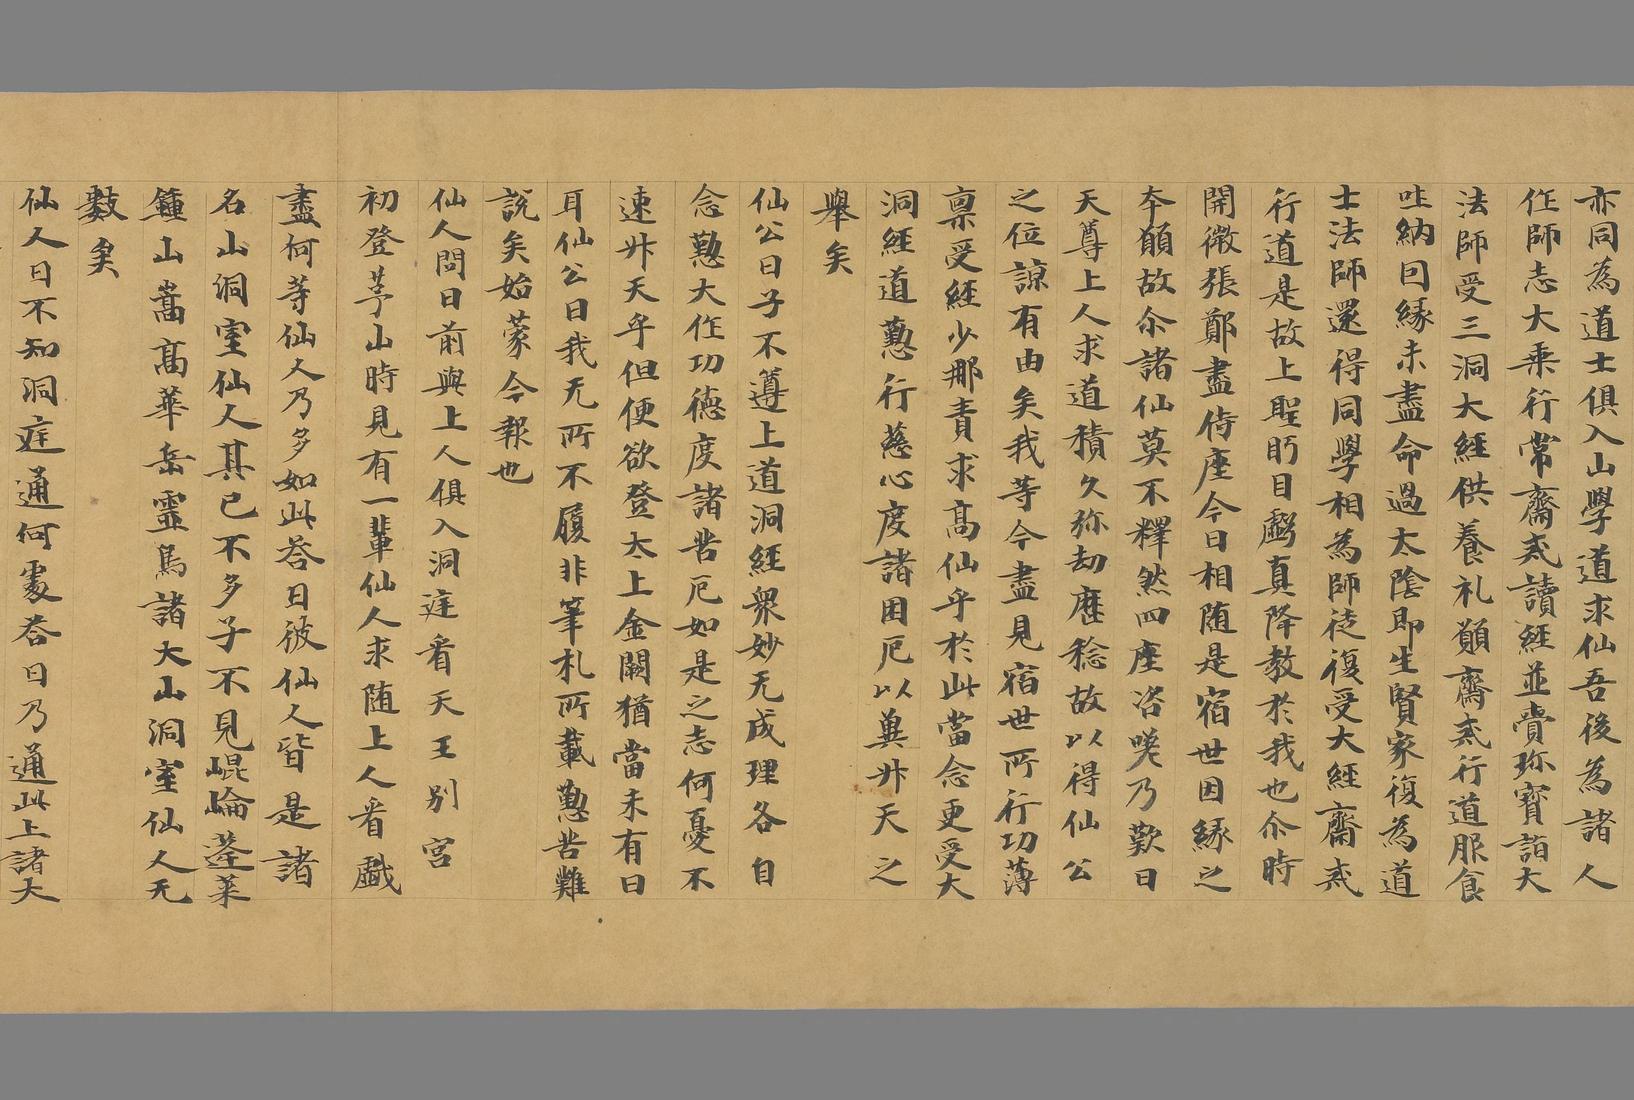 亦同為道士俱入山學道求仙吾後為諸人
作師志大乗行常齋戒讀經並賷弥寳詣大
法師受三洞大經供養礼願齋戒行道服食
吐納因緣未盡命過太陰即生賢家復為道
士法師還得同學相為師徒復受大經齋戒
行道是故上聖眄目虧真降教於我也尒時
開微張鄭盡侍座今日相随是宿世因緣之
本願故尒諸仙莫不釋然四座咨嘆乃歎曰
天尊上人求道積久弥劫歷稔故以得仙公
之位諒有由矣我等今盡見宿世所行功薄
禀受經少那責求髙仙乎於此當念更受大
洞經道懃行慈心度諸困厄以冀升天之
舉矣
仙公曰子不遵上道洞經衆妙无成理各自
念懃大作功德度諸苦厄如是之志何憂不
速升天乎但便欲登太上金闕猶當未有日
耳仙公曰我无所不履非筆札所載懃苦難
説矣始蒙今報也
仙人問曰前與上人俱入洞庭看天王别宫
初登芧山時見有一輩仙人求随上人看戱
盡何等仙人乃多如此荅曰彼仙人皆是諸
名山洞室仙人其已不多子不見崐崘蓬萊
鍾山嵩髙華岳靈馬諸大山洞室仙人无
數矣
仙人曰不知洞庭通何處荅曰乃通此上諸大